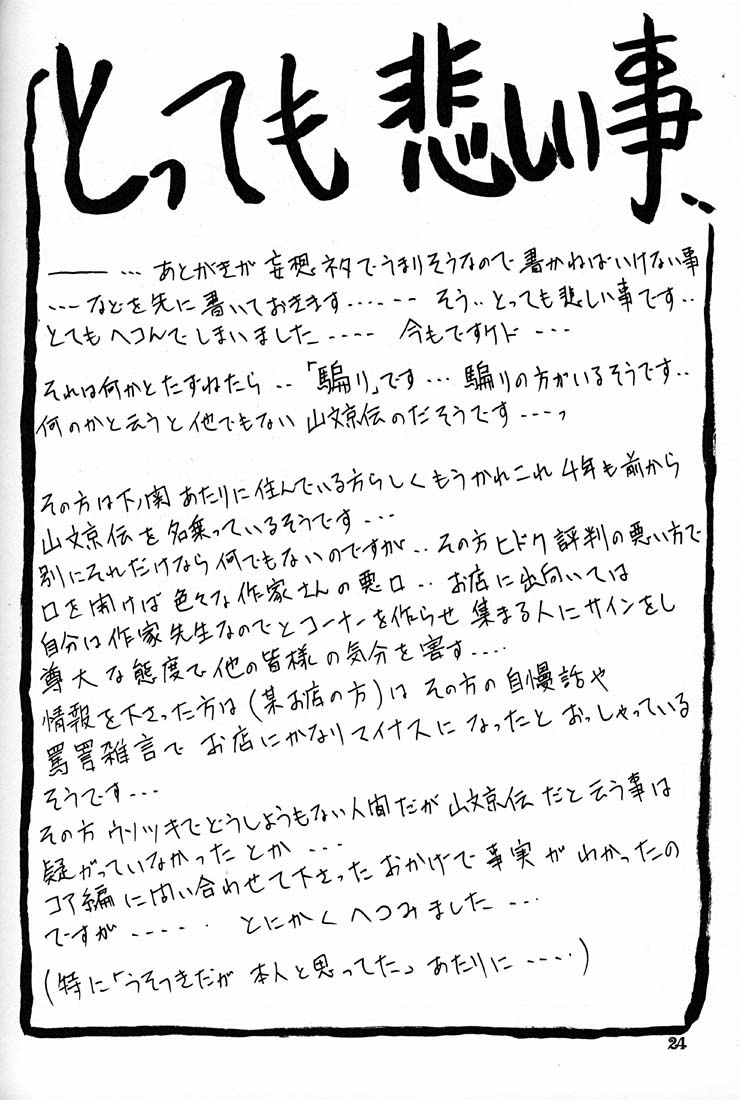 とっても悲しい事..
―― … あとがきが 妄想ネタでうまりそうなので 書かねばいけない事
---- などを先に書いておきます…---- そう.. とっても悲しい事です..
とてもヘコんでしまいました ---- 今もですケド ---
それは何かとたずねたら .. 「騙り」です… 騙りの方がいるそうです..
何のかと云うと他でもない 山文京伝のだそうです ---っ
その方は下ノ関 あたりに住んでいる方らしくもうかれこれ 4年も前から
山文京伝を名乗っているそうです ---
別にそれだけなら何でもないのですが .. その方ヒドク評判の悪い方で
口を開けば 色々な作家さんの悪口 .. お店に出向いては
自分は作家先生なのでとコーナーを作らせ 集まる人にサインをし
尊大な態度で他の皆様の気分を害す ----
情報を下さった方は (某お店の方) は その方の自慢話や
罵詈雑言で お店にかなりマイナスに なったと おっしゃっている
そうです ---
その方 ウソツキでどうしようもない人間だが 山文京伝だと云う事は
疑がっていなかったとか ---
コア編に問い合わせて下さった おかげで 事実が わかったの
ですが ----- とにかく へコみました ---
(特に「うそつきだが 本人と思ってた」 あたりに ----)
24